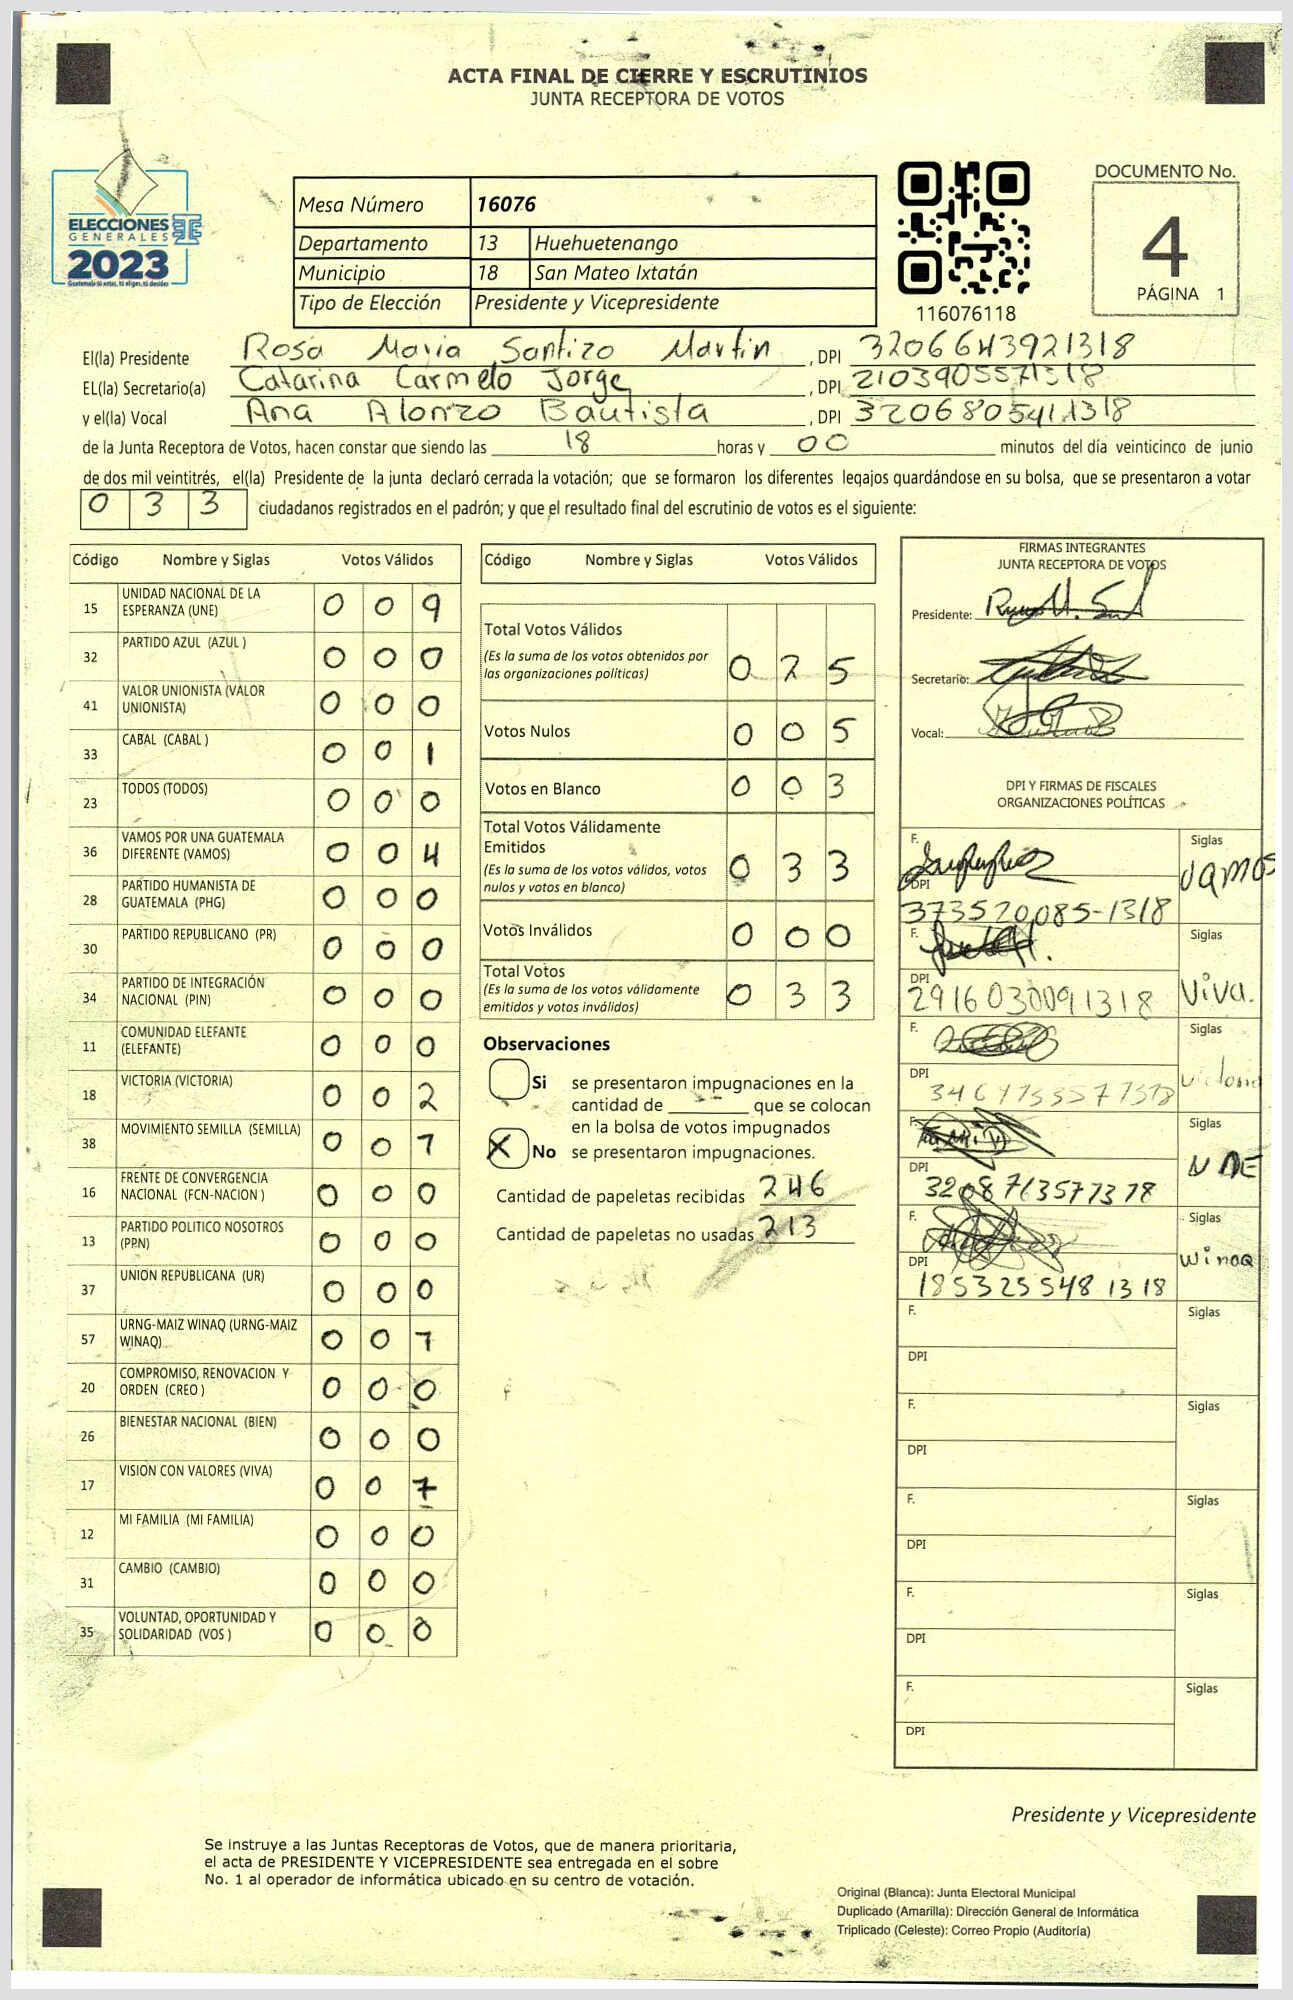 ACTA FINAL DE CIERRE Y ESCRUTINIOS
JUNTA RECEPTORA DE VOTOS
ELECCIONES
GENERALES
2023
Guatemala tú votas, tú eliges, tú decides
Mesa Número 16076
Departamento 13 Huehuetenango
Municipio 18 San Mateo Ixtatán
Tipo de Elección Presidente y Vicepresidente
116076118
DOCUMENTO No.
4
PÁGINA 1
El(la) Presidente Rosa Maria Santizo Martin, DPI 3206643921318
EL(la) Secretario(a) Catarina Carmelo Jorge, DPI 2103905571318
y el(la) Vocal Ana Alonzo Bautista, DPI 3206805411318
de la Junta Receptora de Votos, hacen constar que siendo las 18 horas y 00 minutos del día veinticinco de junio
de dos mil veintitrés, el(la) Presidente de la junta declaró cerrada la votación; que se formaron los diferentes legajos guardándose en su bolsa, que se presentaron a votar
0 3 3 ciudadanos registrados en el padrón; y que el resultado final del escrutinio de votos es el siguiente:
Código Nombre y Siglas Votos Válidos
15 UNIDAD NACIONAL DE LA ESPERANZA (UNE) 0 0 9
32 PARTIDO AZUL (AZUL ) 0 0 0
41 VALOR UNIONISTA (VALOR UNIONISTA) 0 0 0
33 CABAL (CABAL ) 0 0 1
23 TODOS (TODOS) 0 0 0
36 VAMOS POR UNA GUATEMALA DIFERENTE (VAMOS) 0 0 4
28 PARTIDO HUMANISTA DE GUATEMALA (PHG) 0 0 0
30 PARTIDO REPUBLICANO (PR) 0 0 0
34 PARTIDO DE INTEGRACIÓN NACIONAL (PIN) 0 0 0
11 COMUNIDAD ELEFANTE (ELEFANTE) 0 0 0
18 VICTORIA (VICTORIA) 0 0 2
38 MOVIMIENTO SEMILLA (SEMILLA) 0 0
16 FRENTE DE CONVERGENCIA NACIONAL (FCN-NACION ) 0 0 0
13 PARTIDO POLITICO NOSOTROS (PPN) 0 0 0
37 UNION REPUBLICANA (UR) 0 0 0
57 URNG-MAIZ WINAQ (URNG-MAIZ WINAQ) 0 0
20 COMPROMISO, RENOVACION Y ORDEN (CREO ) 0 0 0
26 BIENESTAR NACIONAL (BIEN) 0 0 0
17 VISION CON VALORES (VIVA) 0 0 7
12 MI FAMILIA (MI FAMILIA) 0 0 0
31 CAMBIO (CAMBIO) 0 0 0
35 VOLUNTAD, OPORTUNIDAD Y SOLIDARIDAD (VOS ) 0 0 0
Código Nombre y Siglas Votos Válidos
Total Votos Válidos 0 2 5
(Es la suma de los votos obtenidos por
las organizaciones políticas)
Votos Nulos 0 0 5
Votos en Blanco 0 0 3
Total Votos Válidamente
Emitidos 0 3 3
(Es la suma de los votos válidos, votos
nulos y votos en blanco)
Votos Inválidos 0 0 0
Total Votos 0 3 3
(Es la suma de los votos válidamente
emitidos y votos inválidos)
Observaciones
Si se presentaron impugnaciones en la
cantidad de ________ que se colocan
en la bolsa de votos impugnados
X No se presentaron impugnaciones.
Cantidad de papeletas recibidas 246
Cantidad de papeletas no usadas 213
FIRMAS INTEGRANTES
JUNTA RECEPTORA DE VOTOS
Presidente:
Secretario:
Vocal:
DPI Y FIRMAS DE FISCALES
ORGANIZACIONES POLÍTICAS
F. Siglas Vamos
DPI 373520085-1318
F. Siglas Viva.
DPI 2916030091318
F. Siglas Victoria
DPI
F. Siglas UNE
DPI
F. Siglas Winaq
DPI 185325548 1318
F. Siglas
DPI
F. Siglas
DPI
F. Siglas
DPI
F. Siglas
DPI
F. Siglas
DPI
Presidente y Vicepresidente
Se instruye a las Juntas Receptoras de Votos, que de manera prioritaria,
el acta de PRESIDENTE Y VICEPRESIDENTE sea entregada en el sobre
No. 1 al operador de informática ubicado en su centro de votación.
Original (Blanca): Junta Electoral Municipal
Duplicado (Amarilla): Dirección General de Informática
Triplicado (Celeste): Correo Propio (Auditoría)